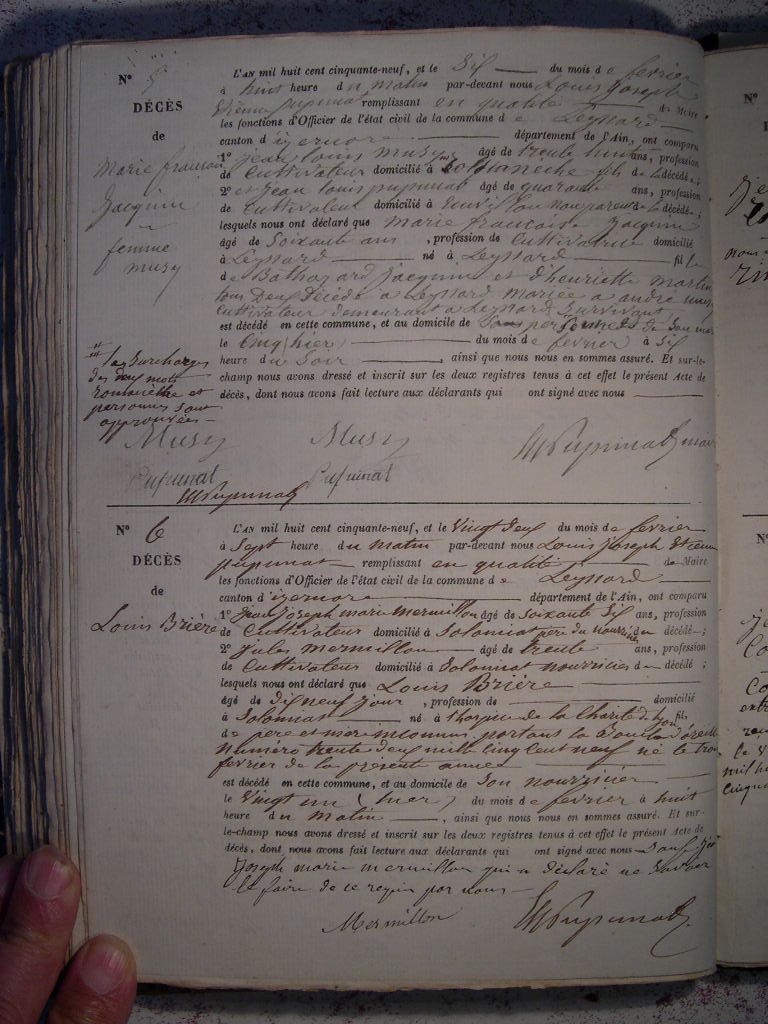 N° 5
DÉCÈS
de
Marie françoise
Jacquin
femme
musy
L'AN mil huit cent cinquante-neuf, et le Six du mois de février
à huit heure du matin par-devant nous Louis Joseph
Etienne pupunat remplissant en qualité de Maire
les fonctions d'Officier de l'état civil de la commune de Leyssard
canton d'izernore département de l'Ain, ont comparu
1° Jean Louis musy âgé de trente huit ans, profession
de Cultivateur domicilié à fils de la décédée;
2° et Jean Louis pupunat âgé de quarante ans, profession
de Cultivateur domicilié à non parent de la décédée;
lesquels nous ont déclaré que marie françoise Jacquin
âgé de Soixante ans, profession de Cultivatrice domicilié
à Leyssard né à Leyssard fille
de Jacquin et d'henriette martin
tous Deux Décédé a Leyssard mariée a andré musy
Cultivateur demeurant a Leyssard Survivant
est décédé en cette commune, et au domicile de de Son mari
le Cinq (hier) du mois de février à Six
heure du Soir, ainsi que nous nous en sommes assuré. Et sur-le-
champ nous avons dressé et inscrit sur les deux registres tenus à cet effet le présent Acte de
décès, dont nous avons fait lecture aux déclarants qui ont signé avec nous
les Surcharges
des deux mots
et
personnes Sont
approuvées
Musy Musy Pupunat maire
Pupunat Pupunat
Pupunat
N° 6
DÉCÈS
de
Louis Brière
L'AN mil huit cent cinquante-neuf, et le Vingt Deux du mois de février
à Sept heure du matin par-devant nous Louis Joseph Etienne
pupunat remplissant en qualité de Maire
les fonctions d'Officier de l'état civil de la commune de Leyssard
canton d'izernore département de l'Ain, ont comparu
1° Jean Joseph marie mermillon âgé de Soixante Six ans, profession
de Cultivateur domicilié à Solomiat père du nourricier du décédé;
2° Jules mermillon âgé de trente ans, profession
de Cultivateur domicilié à Solomiat nourricier du décédé;
lesquels nous ont déclaré que Louis Brière
âgé de Dix neuf jour, profession de domicilié
à Solomiat né à l'hospice de la Charité de Lyon fils,
de père et mère inconnus portant la Boucle d'oreille
Numéro trente deux mille cinq Cent neuf né le trois
février de la présente année
est décédé en cette commune, et au domicile de Son nourricier
le Vingt un (hier) du mois de février à huit
heure du matin, ainsi que nous nous en sommes assuré. Et sur-
le-champ nous avons dressé et inscrit sur les deux registres tenus à cet effet le présent Acte de
décès, dont nous avons fait lecture aux déclarants qui ont signé avec nous Sauf Jean
Joseph marie mermillon qui a déclaré ne Savoir
le faire de ce requis par nous
Mermillon Pupunat